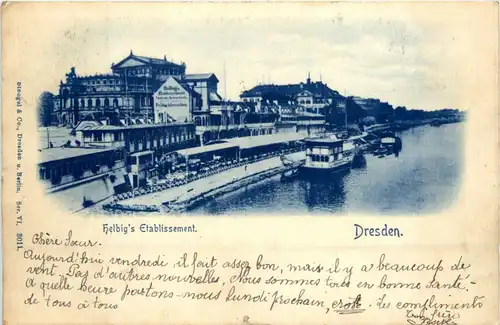 Helbig's
Etablissement
Helbig's Etablissement.
Dresden.
Stengel & Co., Dresden u. Berlin. Ser. VI. 3011.
Chère Sœur.
Aujourd'hui vendredi, il fait assez bon, mais il y a beaucoup de
vent. Pas d'autres nouvelles, Nous sommes tous en bonne Santé.
A quelle heure partons-nous lundi prochain, Les compliments
de tous à tous
Ton frère